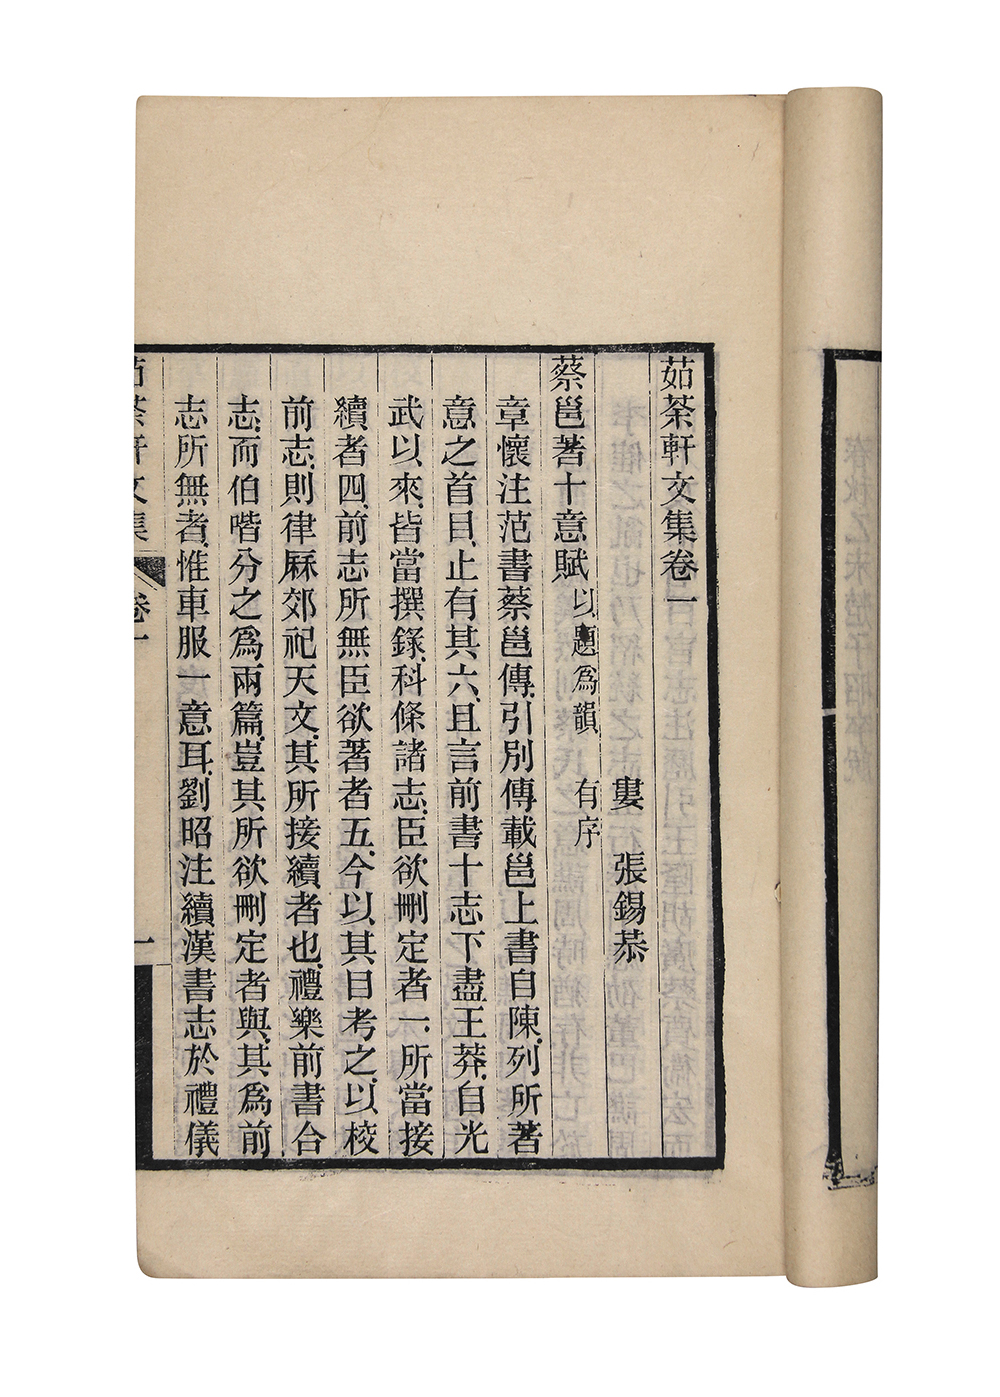 茹荼軒文集卷一
婁　張錫恭
蔡邕著十意賦以題爲韻　有序
章懷注范書蔡邕傳引別傳載邕上書自陳列所著
意之首目止有其六且言前書十志下盡王莽自光
武以來皆當撰錄科條諸志臣欲刪定者一所當接
續者四前志所無臣欲著者五今以其目考之以校
前志則律厤郊祀天文其所接續者也禮樂前書合
志而伯喈分之爲兩篇豈其所欲刪定者與其爲前
志所無者惟車服一意耳劉昭注續漢書志於禮儀
茹荼軒文集　卷一　一